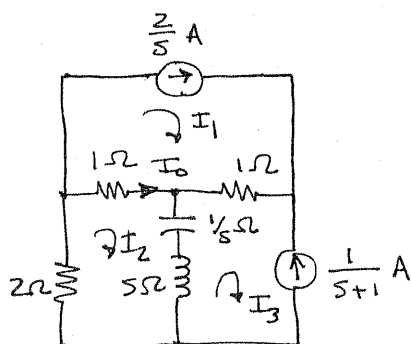 2/s A
I₁
1Ω I₀ 1Ω
1/s Ω
I₂
2Ω sΩ I₃ 1/(s+1) A